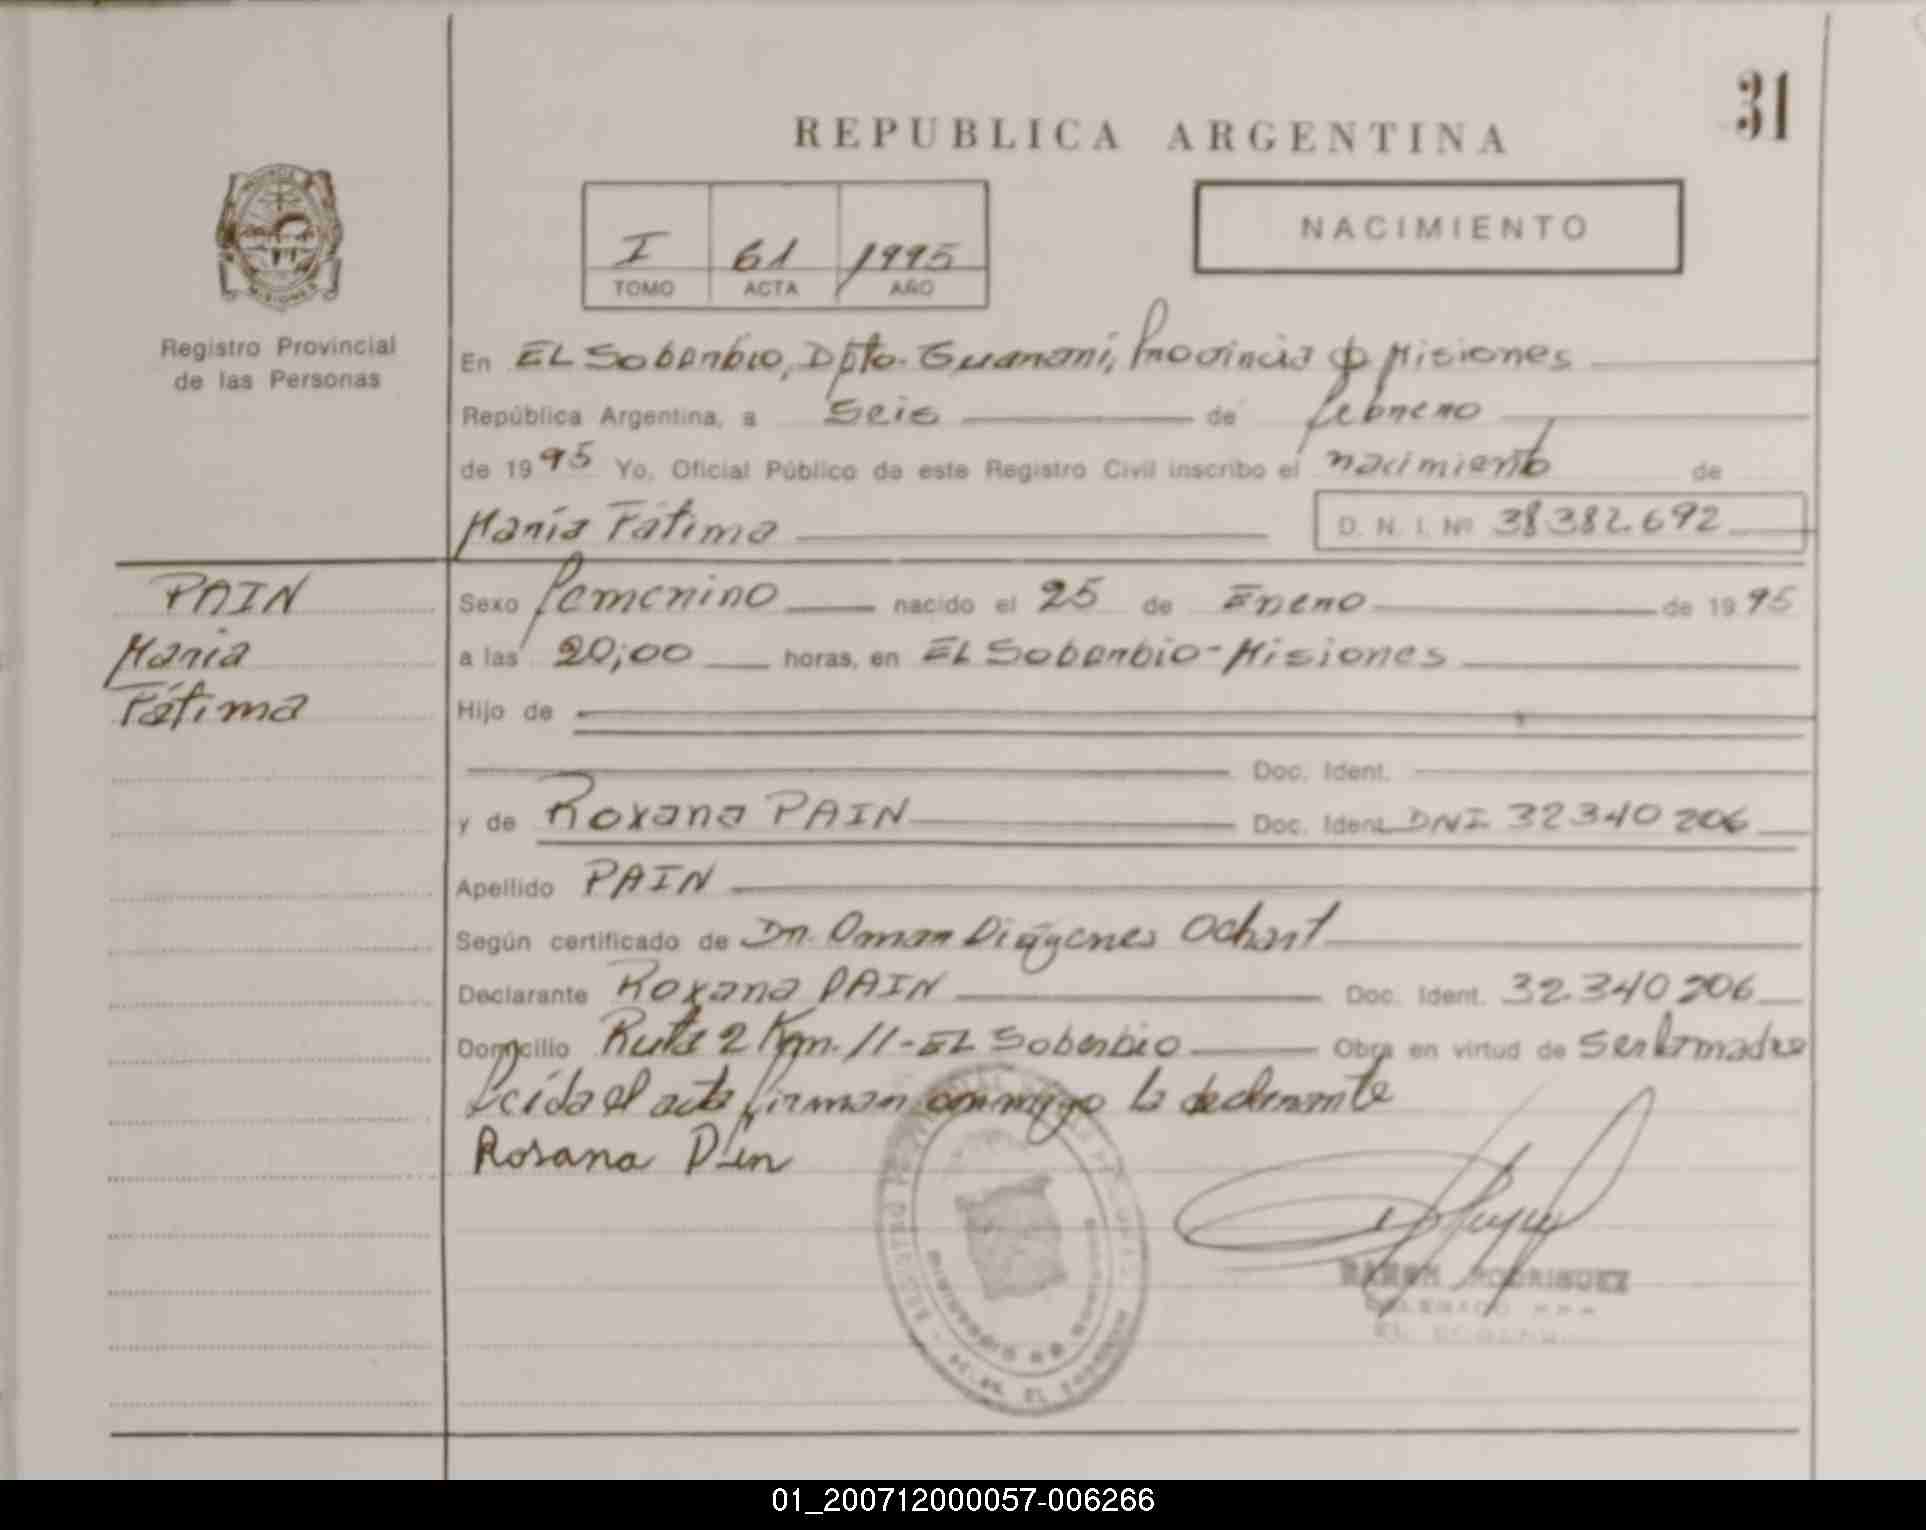 31
REPUBLICA ARGENTINA
NACIMIENTO
I 61 1995
TOMO ACTA AÑO
Registro Provincial
de las Personas
En EL Soberbio, Dpto. Guaraní, Provincia de Misiones
República Argentina, a seis de febrero
de 1995 Yo, Oficial Público de este Registro Civil inscribo el nacimiento de
María Fátima D. N. I. Nº 38382.692
PAIN
María
Fátima
Sexo femenino nacido el 25 de Enero de 1995
a las 20;00 horas, en EL Soberbio-Misiones
Hijo de
Doc. Ident.
y de Roxana PAIN Doc. Ident. DNI 32340206
Apellido PAIN
Según certificado de Dr. Omar Diógenes Ochart
Declarante Roxana PAIN Doc. Ident. 32.340206
Domicilio Ruta 2 Km. 11-EL Soberbio Obra en virtud de ser la madre
Leída el acta firman conmigo la declarante
Rosana
RAMON RODRIGUEZ
DELEGADO
EL
MISIONES
01_200712000057-006266